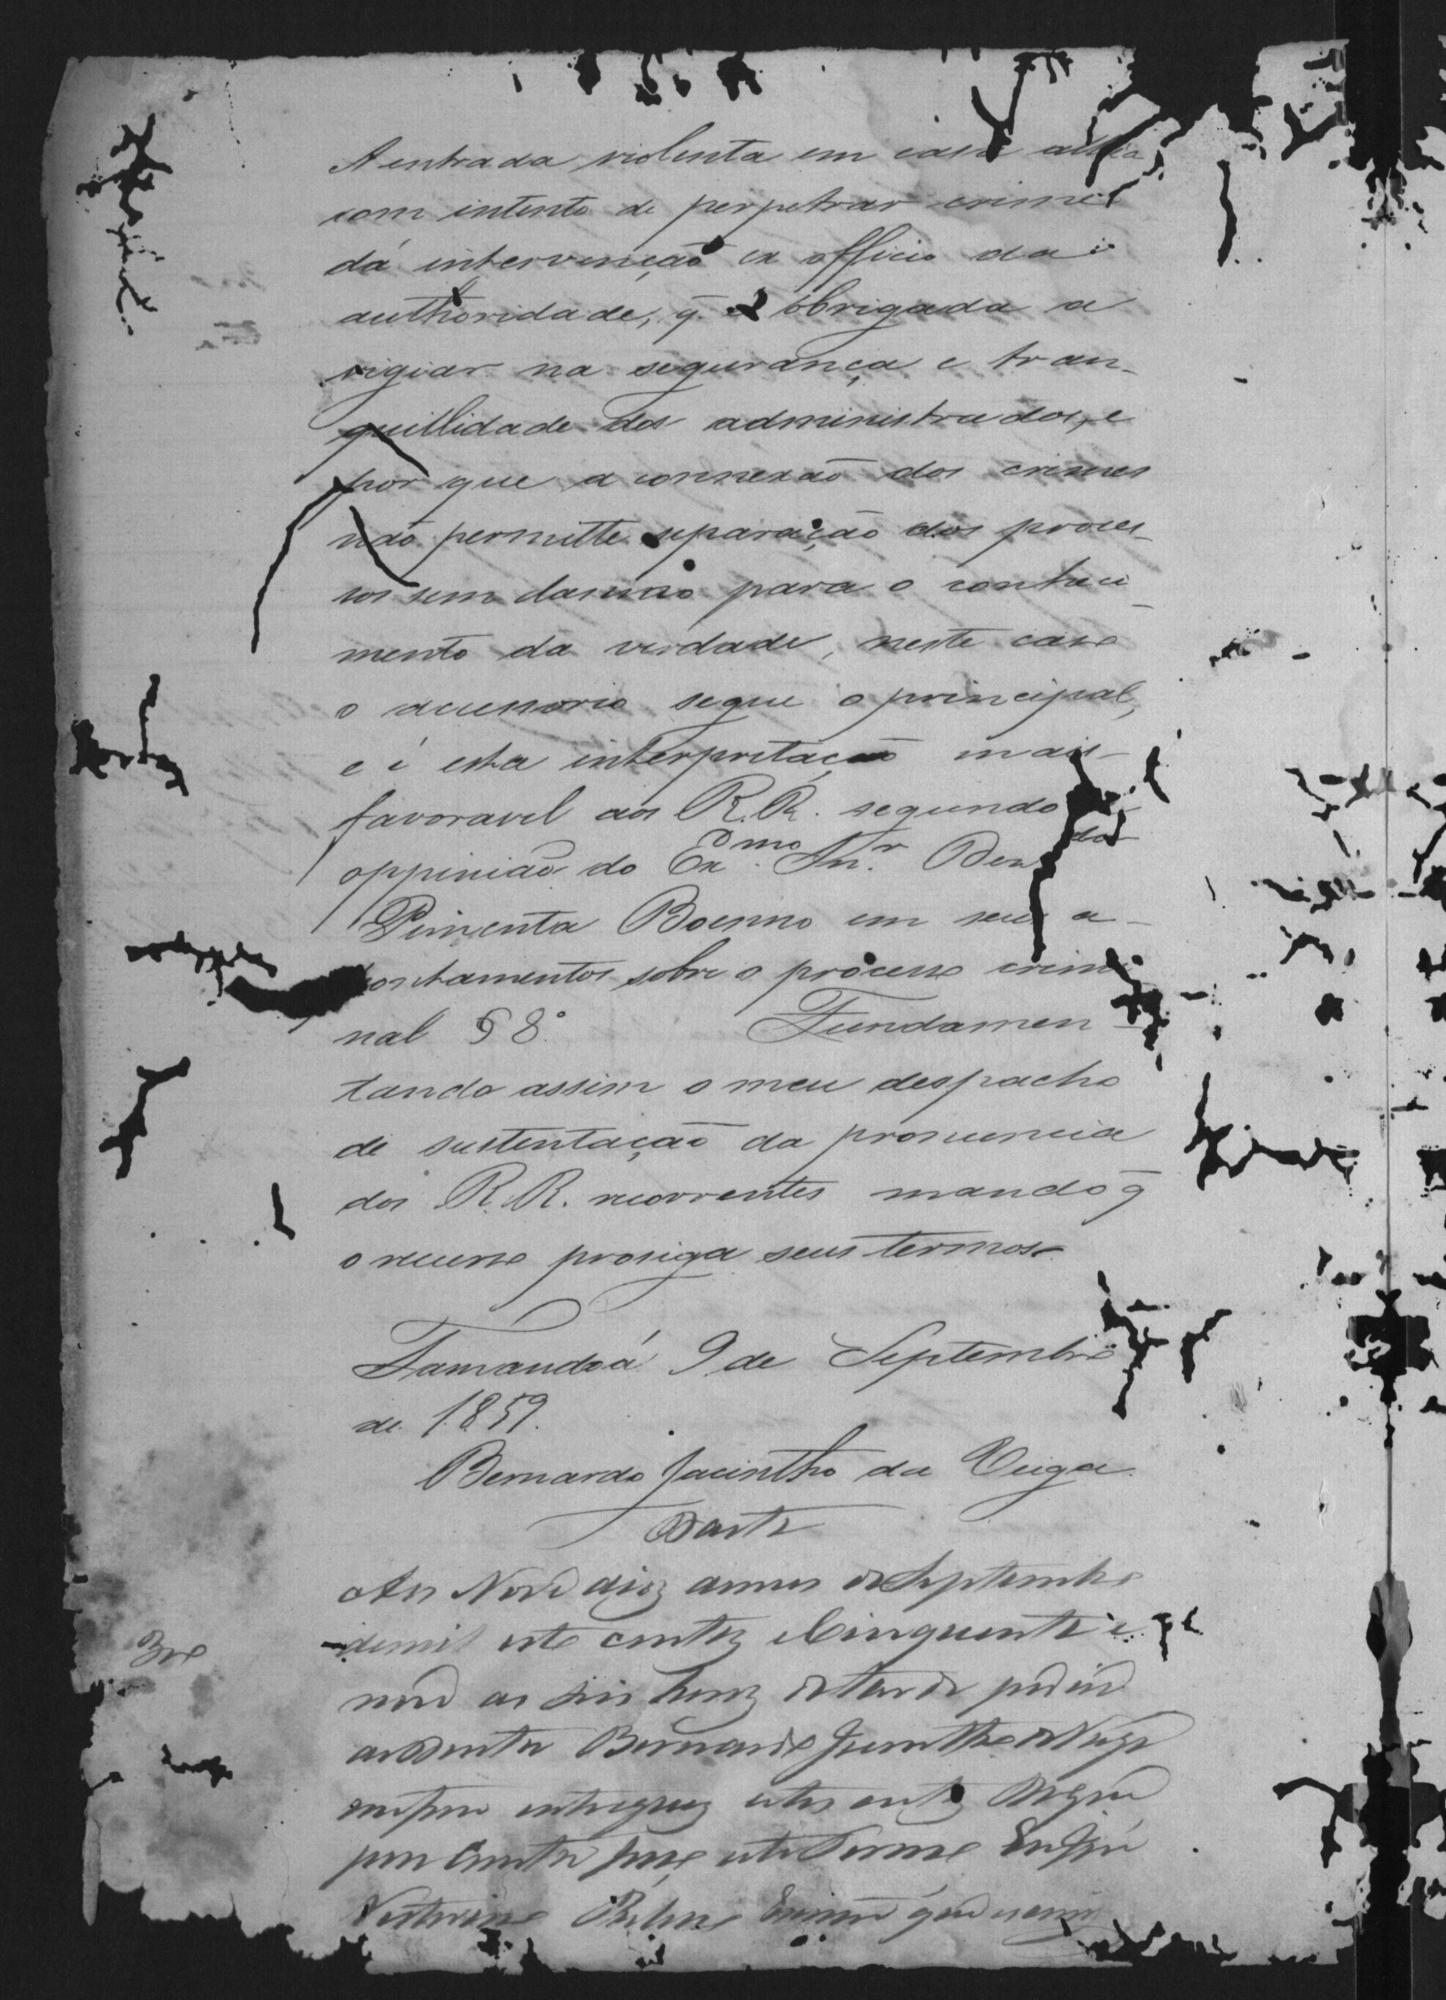 A entrada violenta em casa alheia
com intento de perpetrar crime
dá intervenção ex officio da
authoridade, q. é obrigada a
vigiar na segurança e tran-
quillidade dos administrados, e
por que a connexão dos crimes
não permitte separação dos proces-
sos sem damno para o conheci-
mento da verdade, neste caso
o accessorio segue o principal,
e é esta interpretação mais
favoravel aos R.R. segundo
oppinião do Ex.mo Snr. Dez.dor
Pimenta Boenno em seus a-
pontamentos sobre o processo crimi-
nal § 8.º Fundamen-
tando assim o meu despacho
de sustentação da pronuncia
dos R.R. recorrentes mando q̃
o recurso prosiga seus termos.
Tamanduá 9 de Septembro
de 1859.
Bernardo Jacintho da Veiga
Data
Aos Nove dias de Septembro
demil oito centos e Cincquenta e
nove as da tarde
Bernardo Jacintho da Veiga
entregues estes autos
este termo Eu
Escrivão que